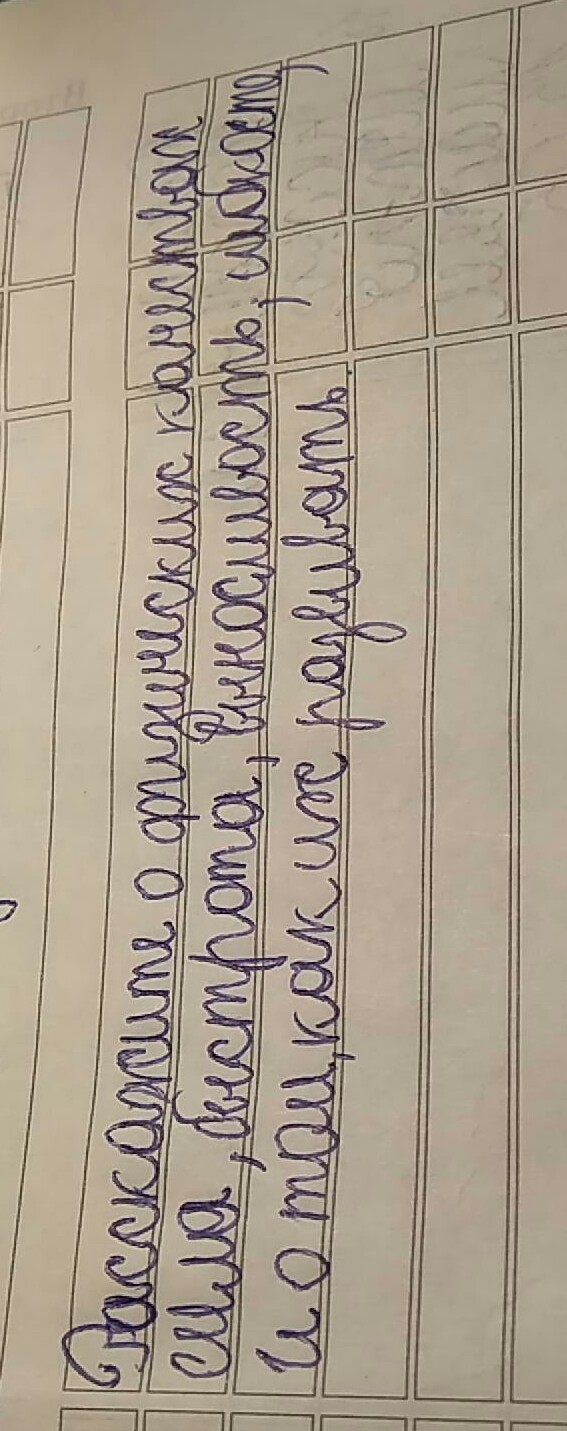 Расскажите о физических качествах
сила, быстрота, выносливость, гибкость,
и о том, как их развивать.